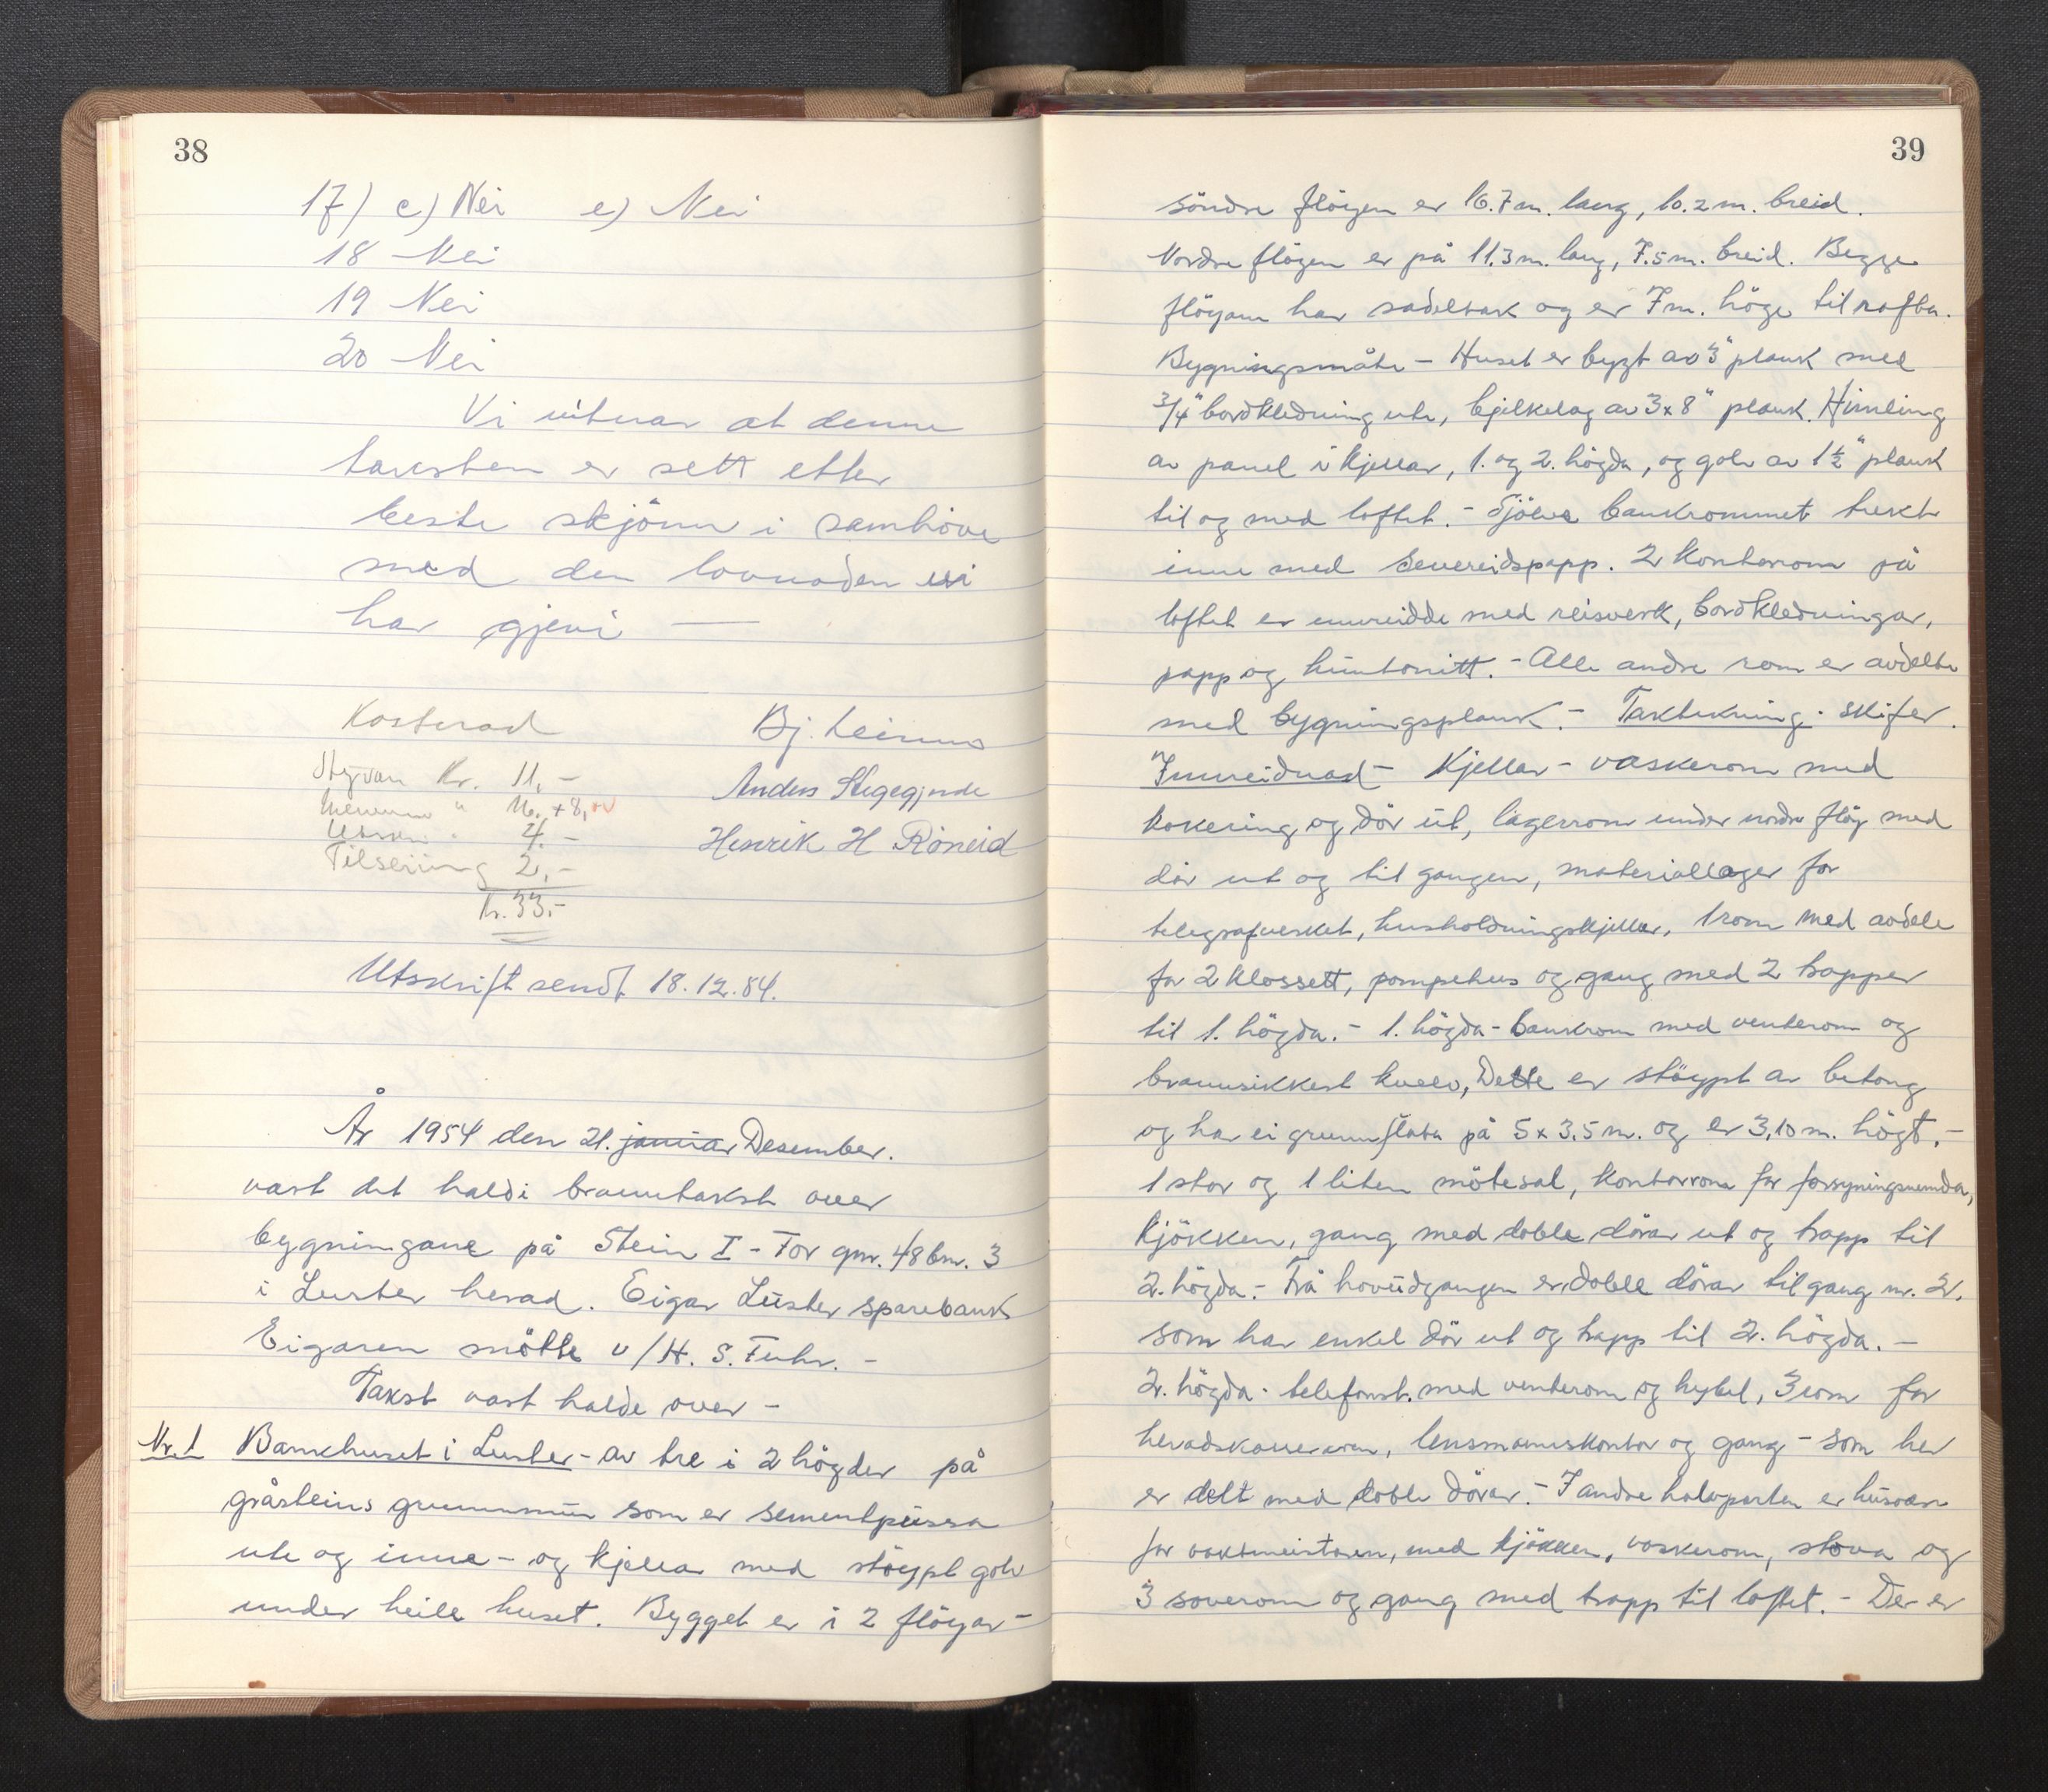 38
17) c) Nei e) Nei
18 Nei
19 Nei
20 Nei
Vi vitnar at denne
taksten er sett etter
beste skjönn i samhöve
med den lovnaden vi
har gjevi —
Kostnad
Styvar Kr. 11,-
" 16. + 8,00
Utskr. " 4.-
Tilseiing 2,-
Kr. 33,-
Bj. Leirmo
Anders Stegegjerde
Henrik H Röneid
Utskrift sendt 18.12.54.
År 1954 den 21. januar Desember.
vart det haldi branntakst over
bygningane på Stein I - Tor gnr. 48 bnr. 3
i Luster herad. Eigar Luster sparebank
Eigaren mötte v/ H. S. Fuhr. -
Takst vart halde over -
Nr. 1 Bankhuset i Luster - av tre i 2 högder på
gråsteins grunnmur som er sementpussa
ute og inne - og kjellar med stöypt golv
under heile huset. Bygget er i 2 flöyar -
39
söndre flöyen er 16.7 m. lang, 10.2 m. breid.
Nordre flögen er på 11.3 m. lang, 7.5 m. breid. Begge
flöyane har sadeltak og er 7 m. höge til rafta.
Bygningsmåte - Huset er bygt av 3" plank med
3/4" bordkledning ute, bjelkelag av 3 x 8" plank. Himling
av panel i kjellar, 1. og 2. högda, og golv av 1 1/2" plank
til og med loftet. - Sjölve bankrommet trekt
inne med Severeidspapp. 2 kontorrom på
loftet er innreidde med reisverk, bordkledningar,
papp og huntonitt. - Alle andre rom er avdelte
med bygningsplank. - Taktekning - skifer.
Innreidnad - Kjellar - vaskerom med
kokering og dör ut, lagerrom under nordre flöy med
dör ut og til gangen, materiallager for
telegrafverket, husholdningskjellar, 1 rom med avdele
for 2 klossett, pompehus og gang med 2 trapper
til 1. högda. - 1. högda - bankrom med venterom og
brannsikkert kvelv, Dette er stöypt av betong
og har ei grunnflate på 5 x 3.5 m. og er 3,10 m. högt. -
1 stor og 1 liten mötesal, kontorrom for forsyningsnemda,
kjökken, gang med doble dörar ut og trapp til
2. högda. - Frå hovudgangen er doble dörar til gang nr. 2.
som har enkel dör ut og trapp til 2. högda. -
2. högda - telefonst. med venterom og hybel, 3 rom for
heradskasseraren, lensmannskontor og gang - som her
er delt med doble dörar. - I andre halvparten er husvære
for vaktmeistaren, med kjökken, vaskerom, stova og
3 soverom og gang med trapp til loftet. - Der er